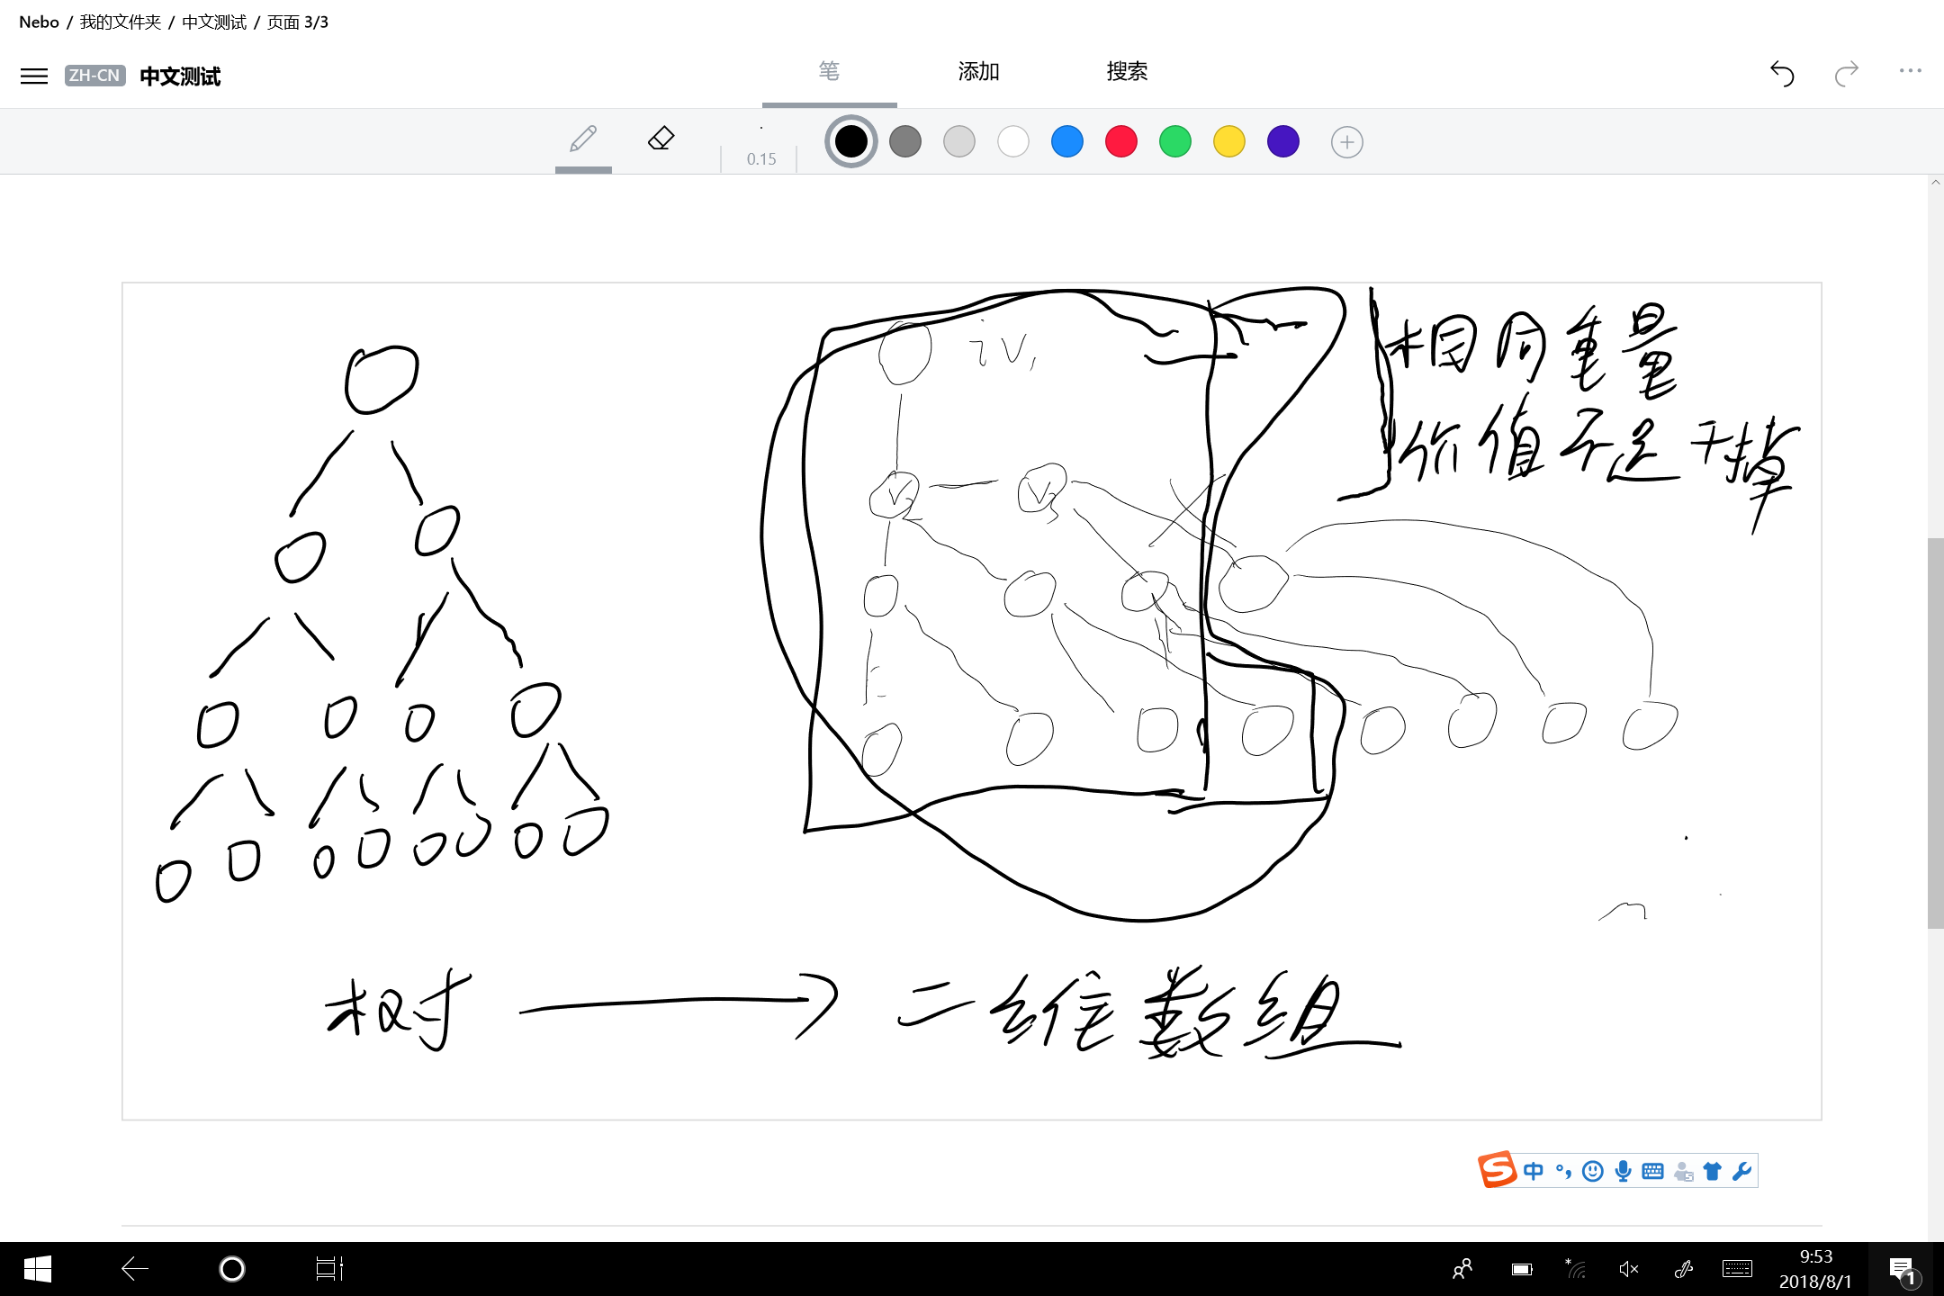 Nebo / 我的文件夹 / 中文测试 / 页面 3/3
ZH-CN 中文测试
笔 添加 搜索
0.15
相同重量
价值不足干掉
树 → 二维数组
中
9:53
2018/8/1
1